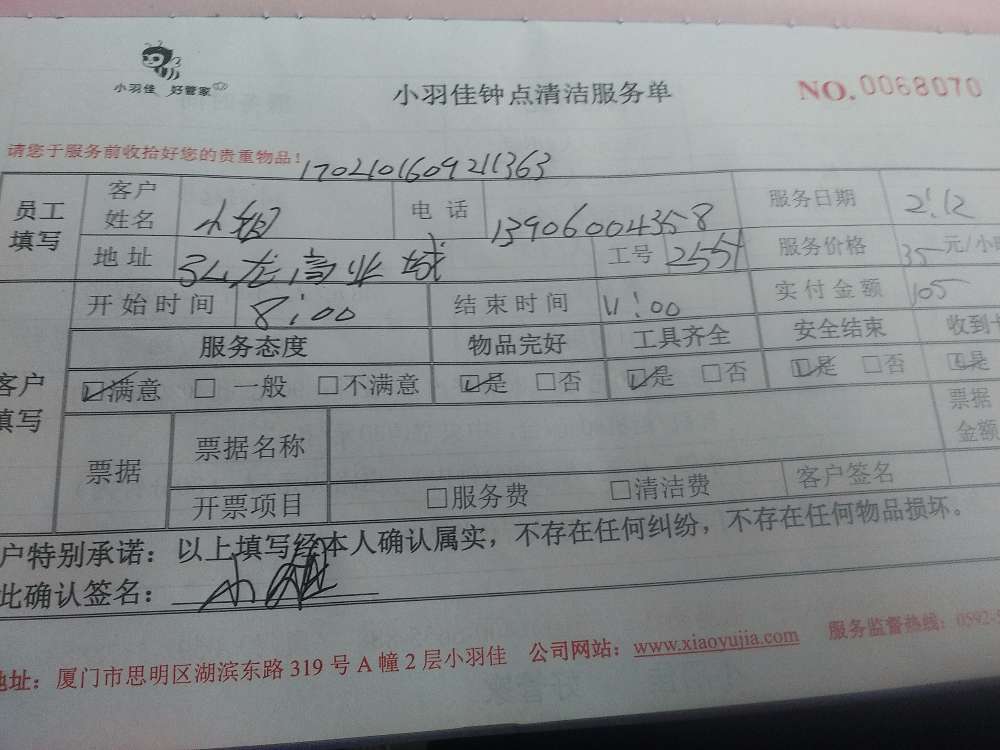 小羽佳 好管家
小羽佳钟点清洁服务单
NO.0068070
请您于服务前收拾好您的贵重物品！
170210160921​1363
员工填写 客户姓名 电话 13906004358 服务日期 2:12
地址 弘龙商业城 工号 2551 服务价格 35元/小
开始时间 8:00 结束时间 11:00 实付金额 105
服务态度 物品完好 工具齐全 安全结束 收到
客户填写 ☑满意 □一般 □不满意 ☑是 □否 ☑是 □否 ☑是 □否 ☑是
票据 票据名称 票据金额
开票项目 □服务费 □清洁费 客户签名
户特别承诺：以上填写经本人确认属实，不存在任何纠纷，不存在任何物品损坏。
此确认签名：
地址：厦门市思明区湖滨东路319号A幢2层小羽佳 公司网站：www.xiaoyujia.com 服务监督热线：0592-